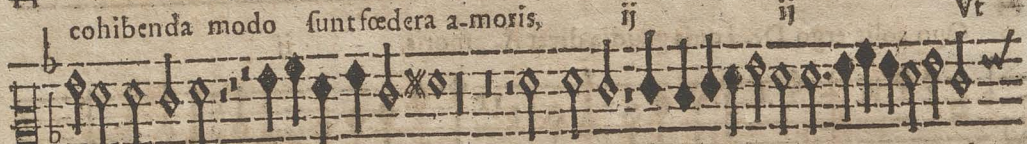 cohibenda modo ſunt fœdera a-moris, ij ij Vt